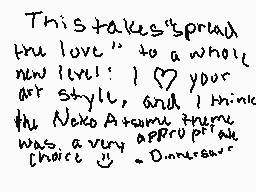 This takes "spread
the love" to a whole
new level! I ♡ your
art style, and I think
the Neko Atsume theme
was a very appropriate
choice ☺ - Dinnersaur